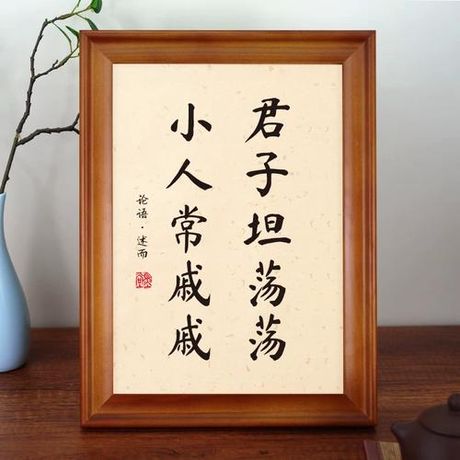 君子坦荡荡
小人常戚戚
论语·述而